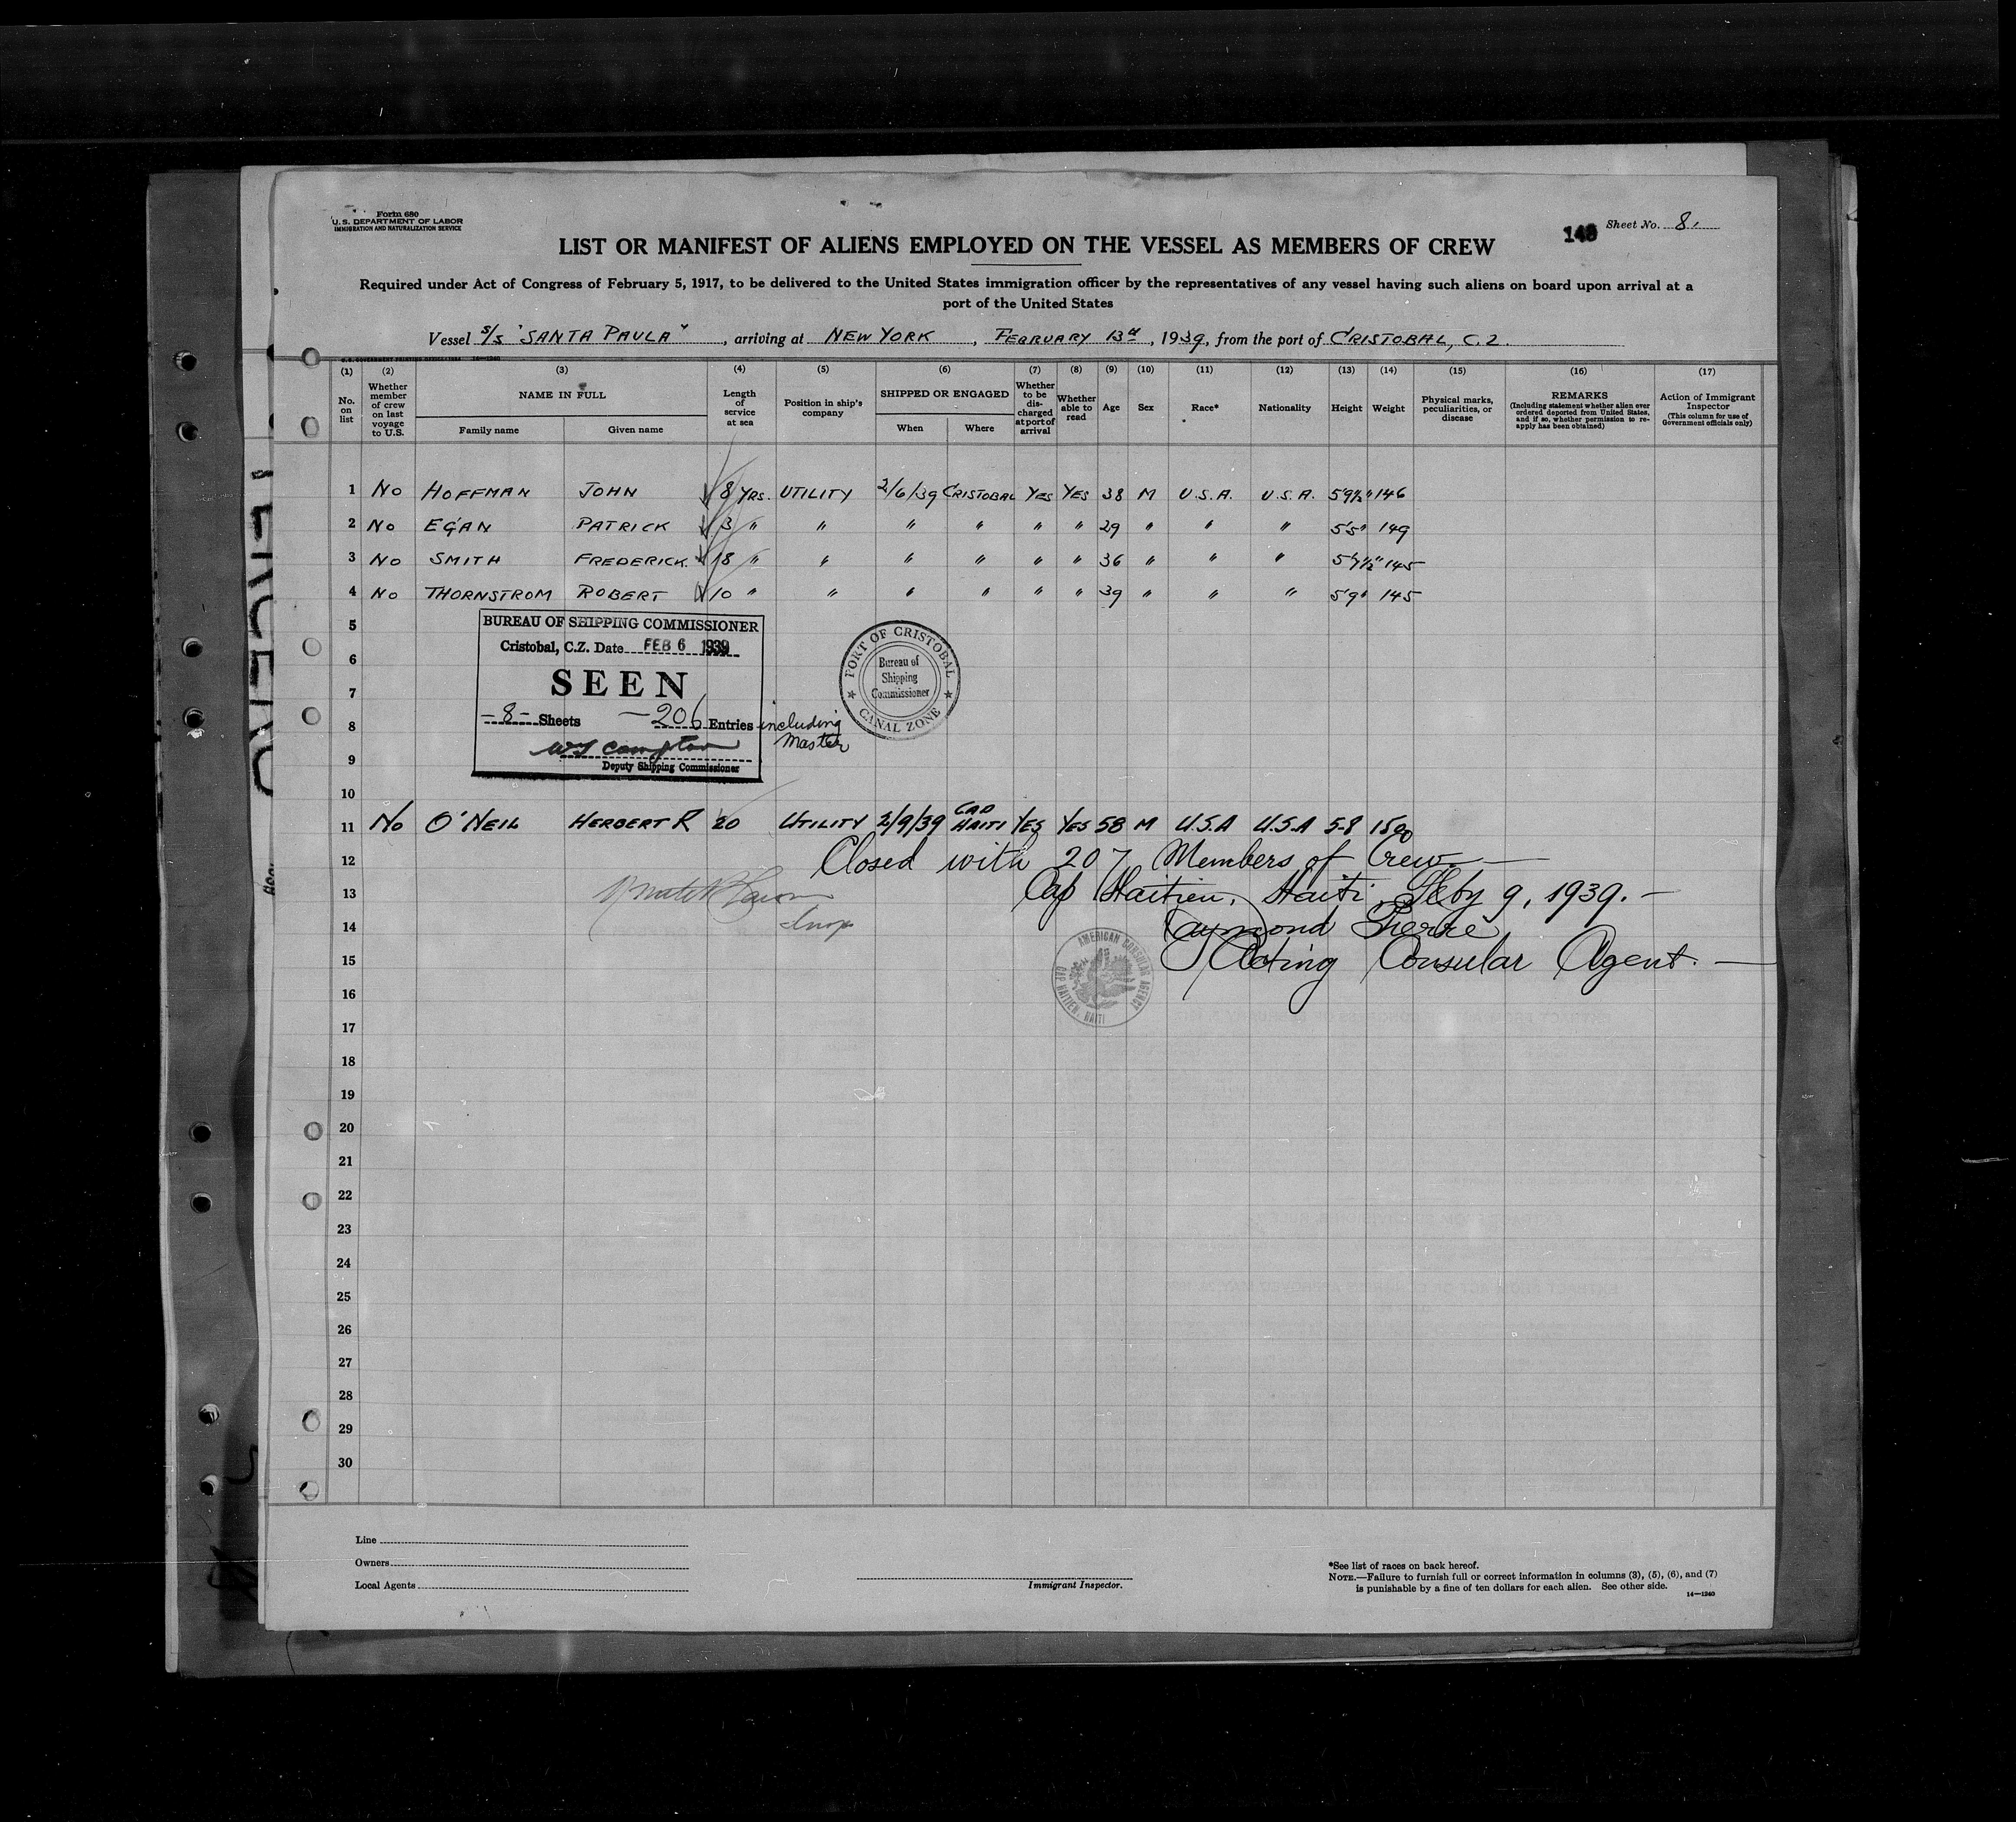 Form 680
U. S. DEPARTMENT OF LABOR
IMMIGRATION AND NATURALIZATION SERVICE
148 Sheet No. 8.
LIST OR MANIFEST OF ALIENS EMPLOYED ON THE VESSEL AS MEMBERS OF CREW
Required under Act of Congress of February 5, 1917, to be delivered to the United States immigration officer by the representatives of any vessel having such aliens on board upon arrival at a
port of the United States
Vessel S/S "SANTA PAULA", arriving at NEW YORK, FEBRUARY 13th, 1939, from the port of CRISTOBAL, C.Z.
(1) No. on list
(2) Whether member of crew on last voyage to U.S.
(3) NAME IN FULL Family name Given name
(4) Length of service at sea
(5) Position in ship's company
(6) SHIPPED OR ENGAGED When Where
(7) Whether to be discharged at port of arrival
(8) Whether able to read
(9) Age
(10) Sex
(11) Race*
(12) Nationality
(13) Height
(14) Weight
(15) Physical marks, peculiarities, or disease
(16) REMARKS (Including statement whether alien ever ordered deported from United States, and if so, whether permission to re-apply has been obtained)
(17) Action of Immigrant Inspector (This column for use of Government officials only)
1 No HOFFMAN JOHN 8 YRS. UTILITY 2/6/39 CRISTOBAL YES YES 38 M U.S.A. U.S.A. 5'9½" 146
2 No EGAN PATRICK 3 " " " " " " 29 " " " 5'5" 149
3 No SMITH FREDERICK. 18 " " " " " " 36 " " " 5'7½" 145
4 No THORNSTROM ROBERT 10 " " " " " " 39 " " " 5'9" 145
5
BUREAU OF SHIPPING COMMISSIONER
Cristobal, C.Z. Date FEB 6 1939
6
SEEN
7
-8- Sheets -206 Entries including Master
8
Deputy Shipping Commissioner
9
PORT OF CRISTOBAL
Bureau of
Shipping
Commissioner
CANAL ZONE
10
11 No O'NEIL HERBERT R 20 UTILITY 2/9/39 CAP HAITI YES YES 58 M U.S.A U.S.A 5-8 180
12 Closed with 207 Members of Crew
13 Cap Haitien, Haiti, Feby 9, 1939.
14 Raymond Pierre
15 Acting Consular Agent.
AMERICAN CONSULAR AGENCY
CAP HAITIEN, HAITI
16
17
18
19
20
21
22
23
24
25
26
27
28
29
30
Line
Owners
Local Agents
Immigrant Inspector.
*See list of races on back hereof.
NOTE.—Failure to furnish full or correct information in columns (3), (5), (6), and (7)
is punishable by a fine of ten dollars for each alien. See other side.
14—1240